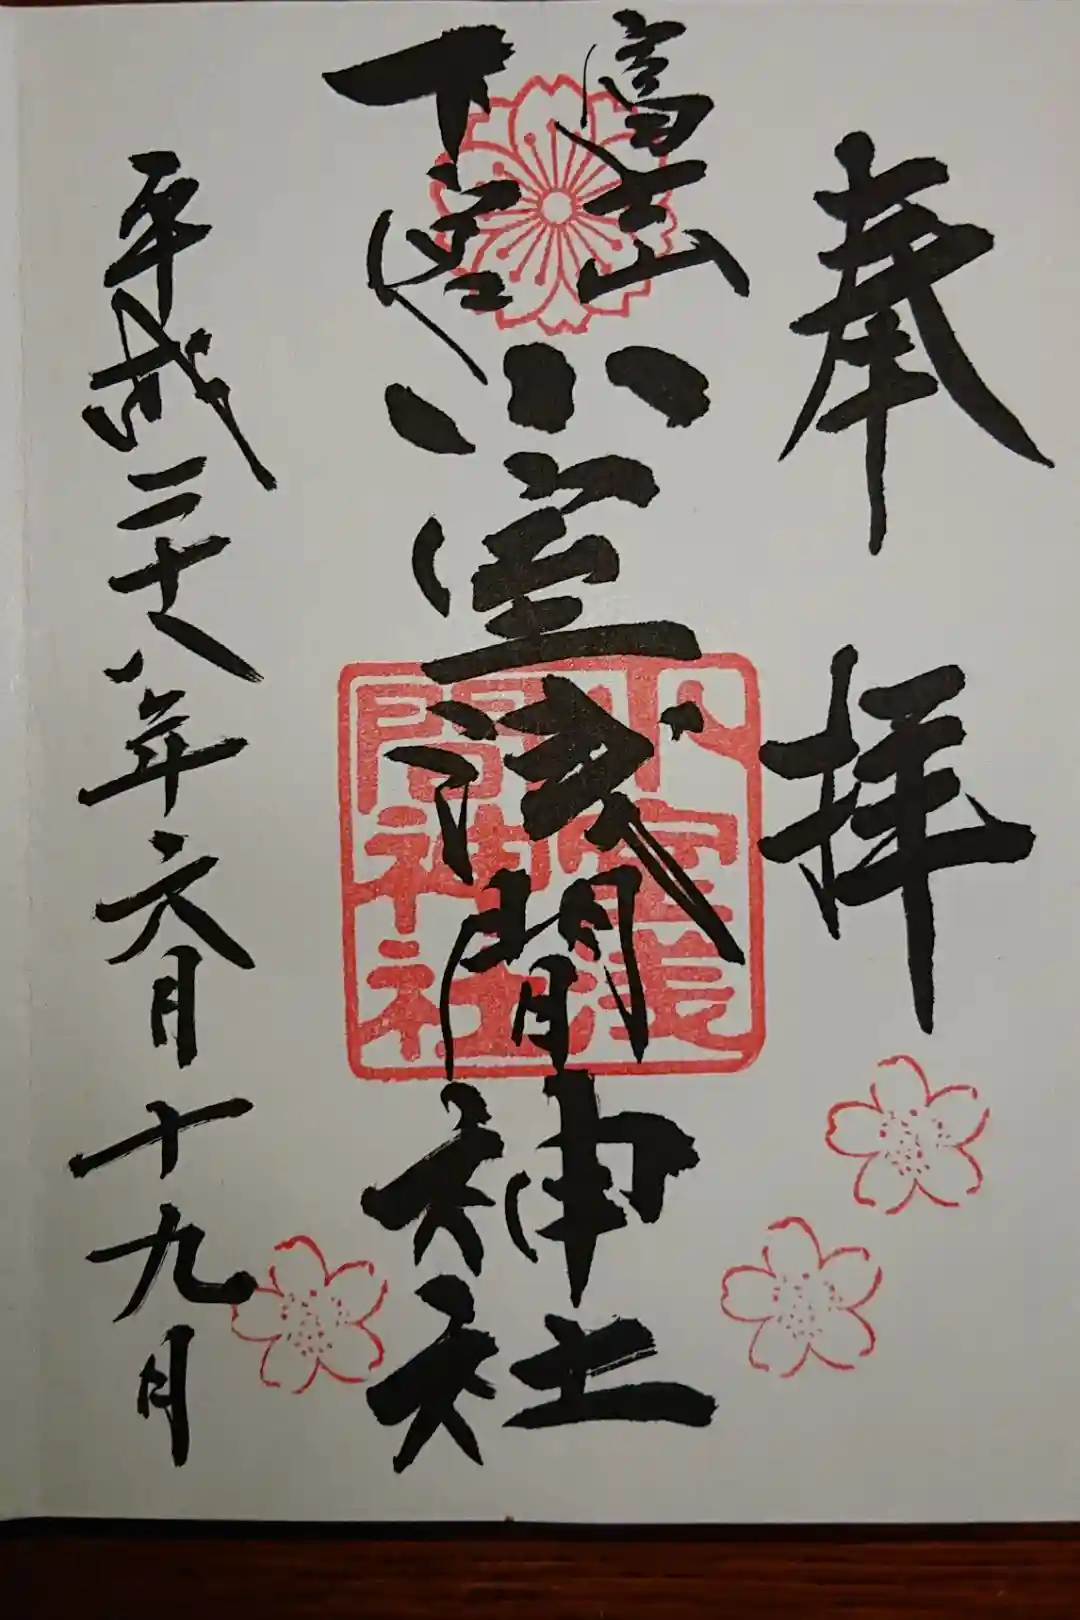 奉拝
富士山
下宮
小室浅間神社
小室浅
間神社
平成二十八年六月十九日